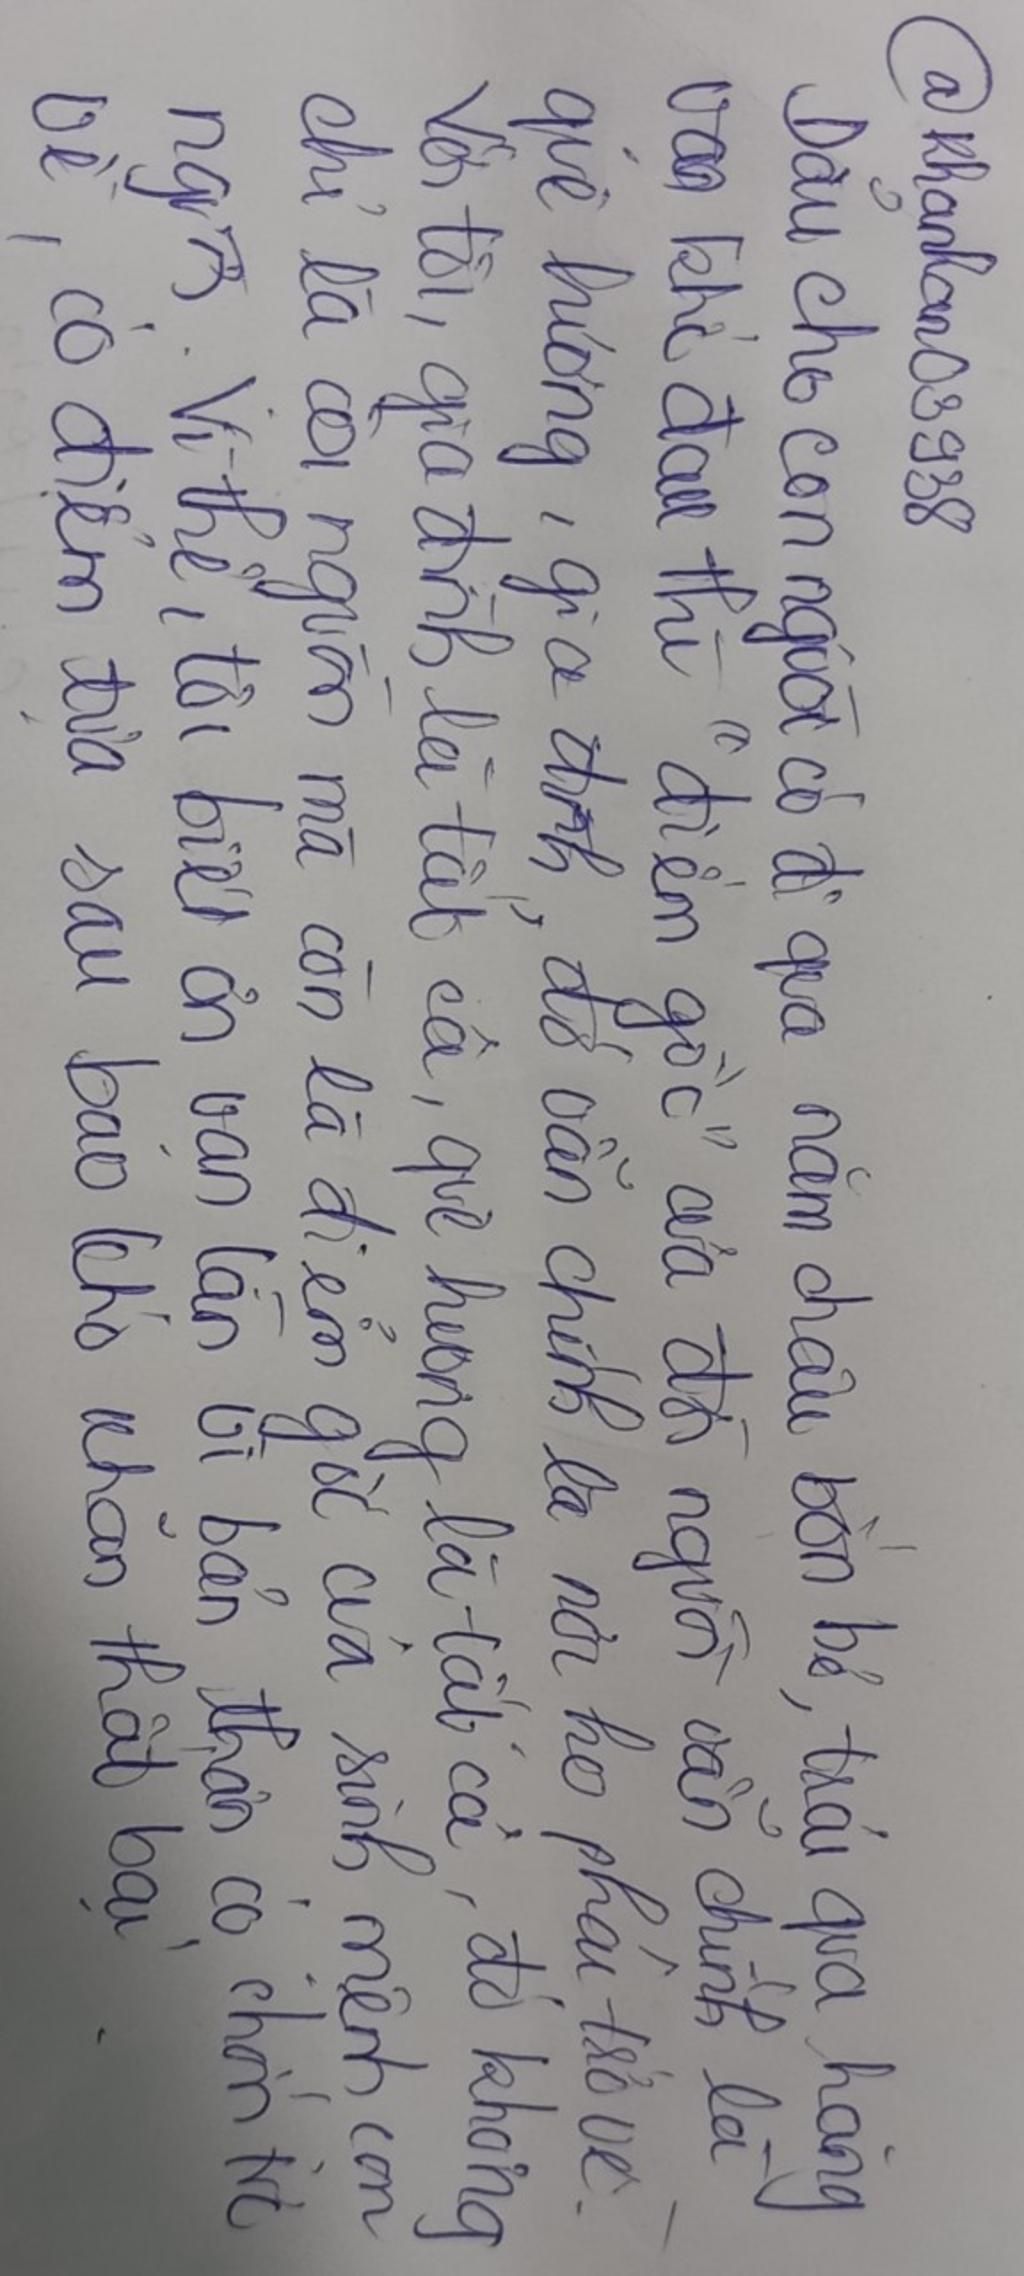 @khanhan03938
Dẫu cho con người có đi qua năm châu bốn bể, trải qua hàng
vạn khổ đau thì "điểm gốc" của đời người vẫn chính là
quê hương, gia đình, đó vẫn chính là nơi họ phải trở về.
Với tôi, gia đình là tất cả, quê hương là tất cả, đó không
chỉ là cội nguồn mà còn là điểm gốc của sinh mệnh con
người. Vì thế, tôi biết ơn vạn lần vì bản thân có chốn trở
về, có điểm tựa sau bao khó khăn thất bại.